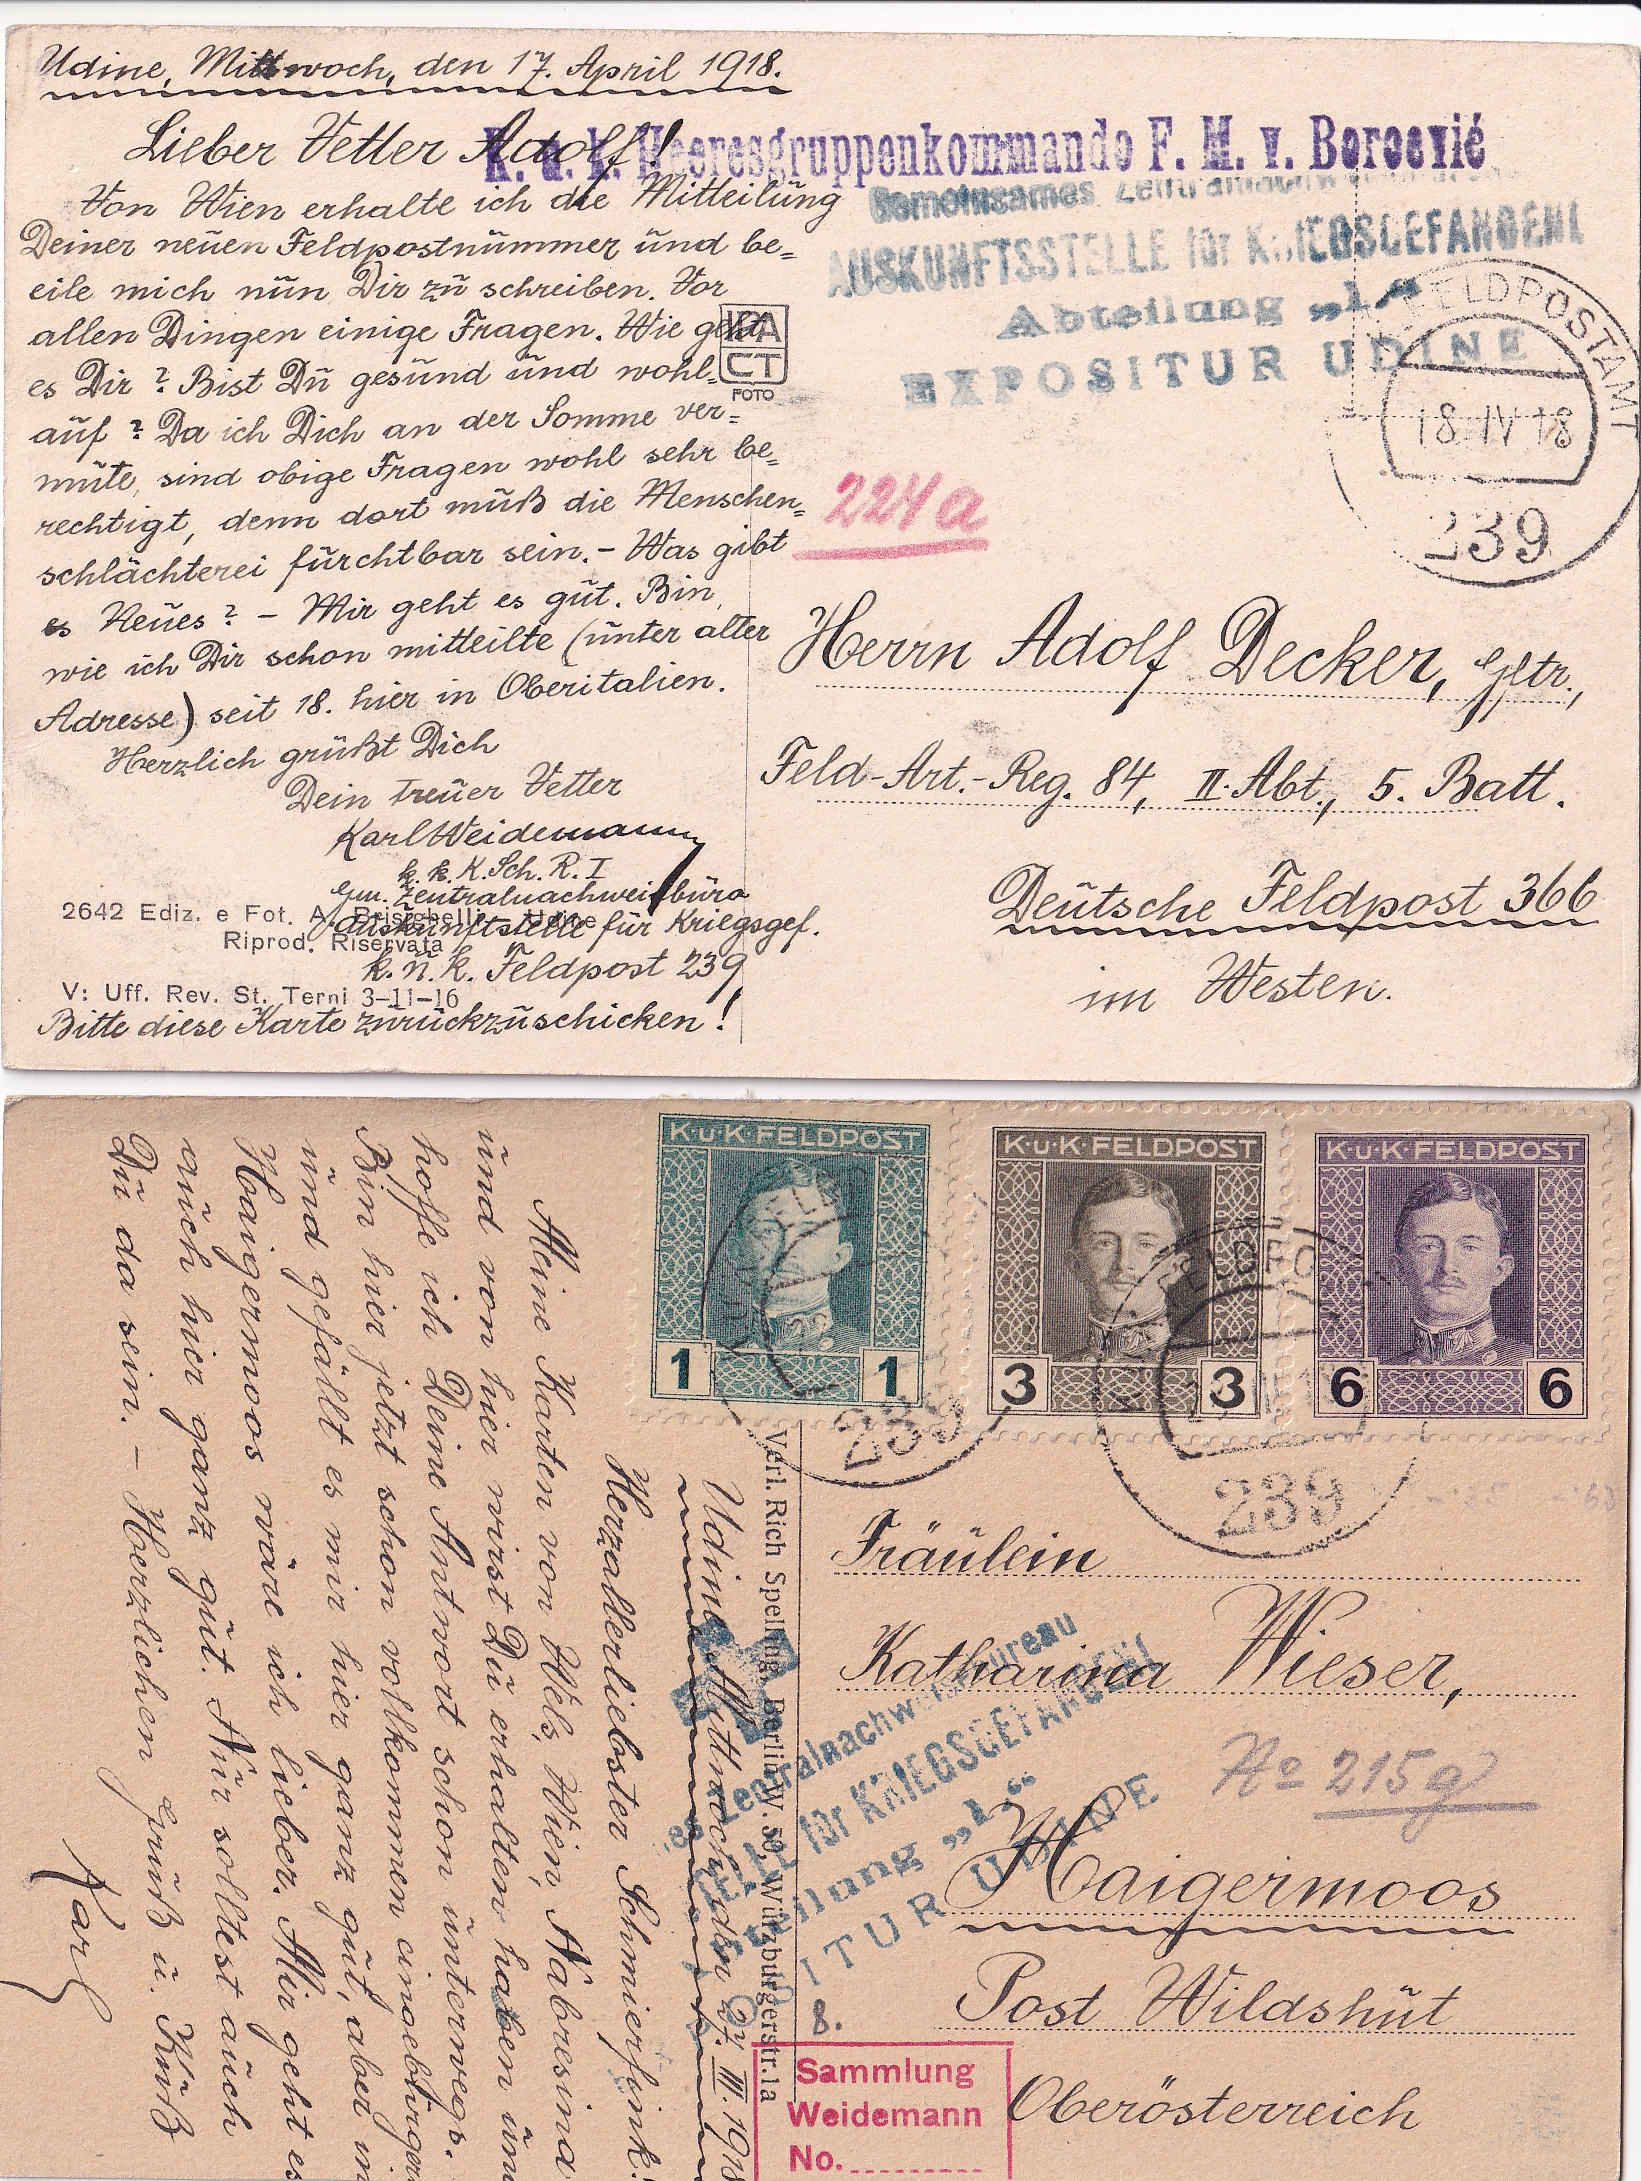 Udine, Mittwoch, den 17. April 1918.
Lieber Vetter Adolf!
Von Wien erhalte ich die Mitteilung
Deiner neuen Feldpostnummer und be=
eile mich nun Dir zu schreiben. Vor
allen Dingen einige Fragen. Wie geht
es Dir? Bist Du gesund und wohl=
auf? Da ich Dich an der Somme ver=
mute, sind obige Fragen wohl sehr be=
rechtigt, denn dort muß die Menschen=
schlächterei furchtbar sein. – Was gibt
es Neues? – Mir geht es gut. Bin,
wie ich Dir schon mitteilte (unter alter
Adresse) seit 18. hier in Oberitalien.
Herzlich grüßt Dich
Dein treuer Vetter
Karl Weidemann
k. k. K. Sch. R. I
Gem. Zentralnachweisbüro
Auskunftstelle für Kriegsgef.
k. u. k. Feldpost 239
Bitte diese Karte zurückzuschicken!
2642 Ediz. e Fot. A. Brisighelli - Udine
Riprod. Riservata
V: Uff. Rev. St. Terni 3-11-16
FOTO
K. u. k. Heeresgruppenkommando F. M. v. Boroević
Gemeinsames
AUSKUNFTSSTELLE für KRIEGSGEFANGENE
Abteilung „I“
EXPOSITUR UDINE
FELDPOSTAMT
18 IV 18
239
224a
Herrn Adolf Decker, Gftr.,
Feld-Art.-Reg. 84, II. Abt., 5. Batt.
Deutsche Feldpost 366
im Westen.
K·u·K·FELDPOST
1 1
K·u·K·FELDPOST
3 3
K·u·K·FELDPOST
6 6
239
239
Verl. Rich Spelling, Berlin W. 50, Würzburgerstr. 1a
Udine, Mittwoch, den 27. III. 1918
Herzallerliebster Schmierfink!
Meine Karten von Wels, Wien, Nabresina
und von hier wirst Du erhalten haben und
hoffe ich Deine Antwort schon unterwegs.
Bin hier jetzt schon vollkommen eingebürgert
und gefällt es mir hier ganz gut, aber in
Haigermoos wäre ich lieber. Mir geht es
auch hier ganz gut. Nur solltest auch
Du da sein. – Herzlichen Gruß u. Kuß
Karl
es Zentralnachweisbureau
TELLE für KRIEGSGEFANGENE
teilung „I.“
ITUR UDINE
Fräulein
Katharina Wieser,
No 215g
Haigermoos
Post Wildshut
Oberösterreich
8.
Sammlung
Weidemann
No.